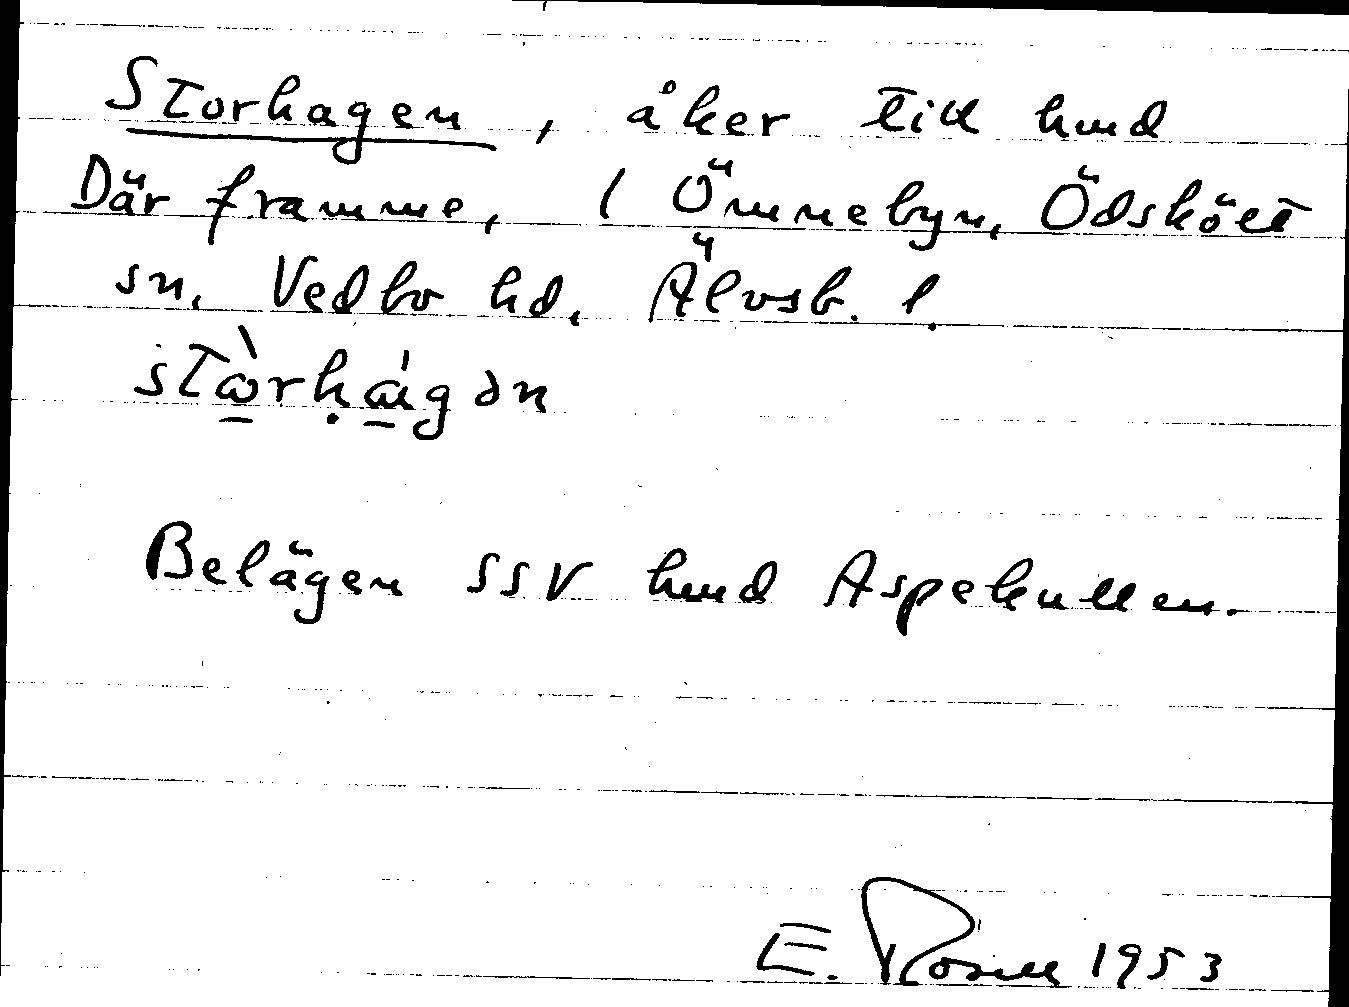 Storhagen, åker till hmd
Där framme, 1 Ömnebyn, Ödskölt
sn, Vedbo hd, Älvsb. l.
stὼrḥágən
Belägen SSV hmd Aspekullen.
E. Rosell 1953